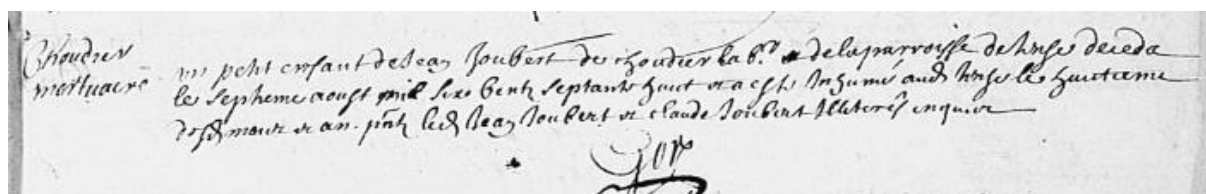 Choudier
mortuaire
un petit enfant de Jean Joubert de choudier lab.r de la parroisse de deceda
le septieme aoust mil six centz septante huict et a esté Inhumé aud le huictieme
desd mois et an. pntz led Jean Joubert et claude Joubert Illiterés enquis